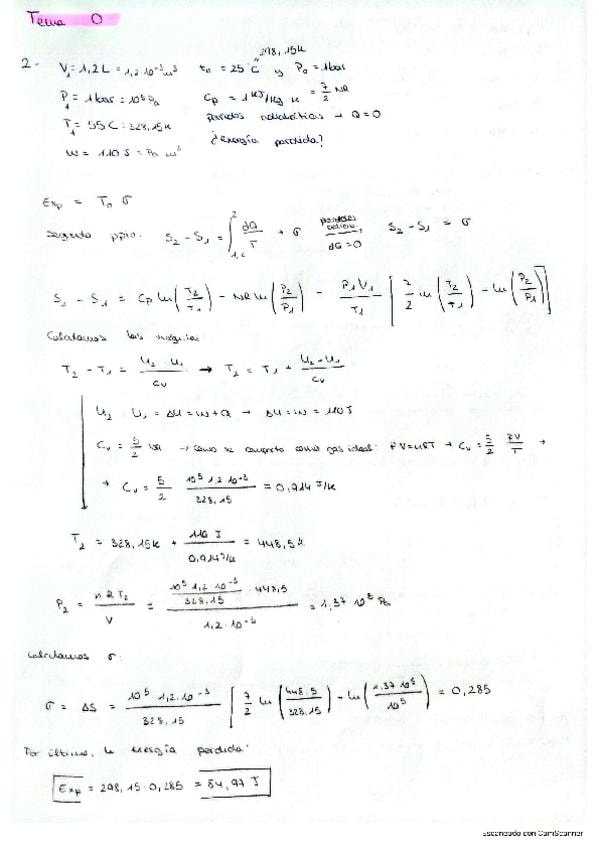 Tema 0
2- V₁ = 1,2 L = 1,2·10⁻³ m³ t₀ = 25°C " 298,15K y P₀ = 1bar
P₁ = 1bar = 10⁵ Pa Cp = 1 KJ/Kg K = 7/2 NR
T₁ = 55C = 328,15K paredes adiabáticas → Q = 0
W = 110 J = Pa m³ ¿energía perdida?
Exp = T₀ σ
Segundo ppio: S₂ - S₁ = ∫₁,c² dQ/T + σ paredes adiab. dQ = 0 S₂ - S₁ = σ
S₂ - S₁ = Cp ln(T₂/T₁) - NR ln(P₂/P₁) - P₁V₁/T₁ [7/2 ln(T₂/T₁) - ln(P₂/P₁)]
Calculamos las incógnitas
T₂ - T₁ = U₂ - U₁/Cv → T₂ = T₁ + U₂ - U₁/Cv
U₂ - U₁ = ΔU = W + Q → ΔU = W = 110J
Cv = 5/2 NR → como se comporta como gas ideal: PV = nRT → Cv = 5/2 PV/T →
→ Cv = 5/2 10⁵ 1,2·10⁻³/328,15 = 0,914 J/K
T₂ = 328,15K + 110 J/0,914 J/K = 448,5K
P₂ = n R T₂/V = 10⁵ 1,2·10⁻³/328,15 · 448,5/1,2·10⁻³ = 1,37 10⁵ Pa
Calculamos σ:
σ = ΔS = 10⁵ 1,2·10⁻³/328,15 [7/2 ln(448,5/328,15) - ln(1,37·10⁵/10⁵)] = 0,285
Por último, la energía perdida:
Exp = 298,15·0,285 = 84,97 J
Escaneado con CamScanner